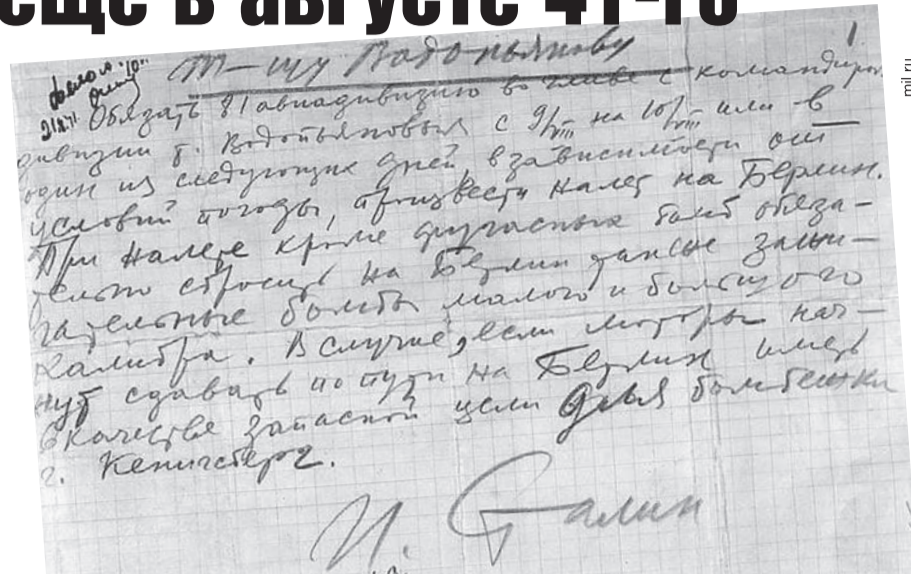 еще в августе 41-го
Т-щу Водопьянову
1
mil.ru
Обязать 81 авиадивизию во главе с командиром
дивизии т. Водопьяновым с 9/VIII на 10/VIII или в
один из следующих дней, в зависимости от
условий погоды, произвести налет на Берлин.
При налете кроме фугасных бомб обяза-
тельно сбросить на Берлин также зажи-
гательные бомбы малого и большого
калибра. В случае, если моторы нач-
нут сдавать по пути на Берлин иметь
в качестве запасной цели для бомбежки
г. Кенигсберг.
И. Сталин